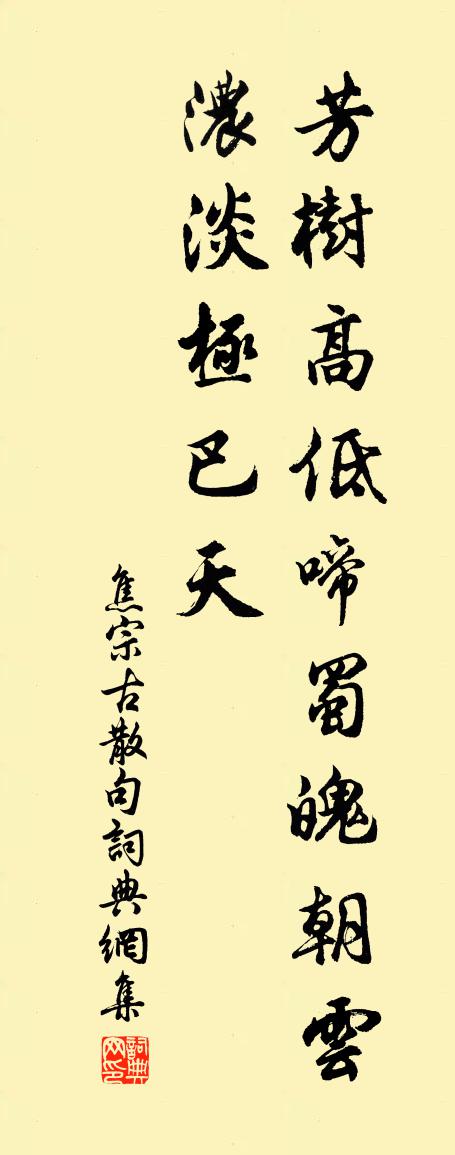 芳樹高低啼蜀魄朝雲
濃淡極巴天
焦宗古散句詞典網集
詞典網印